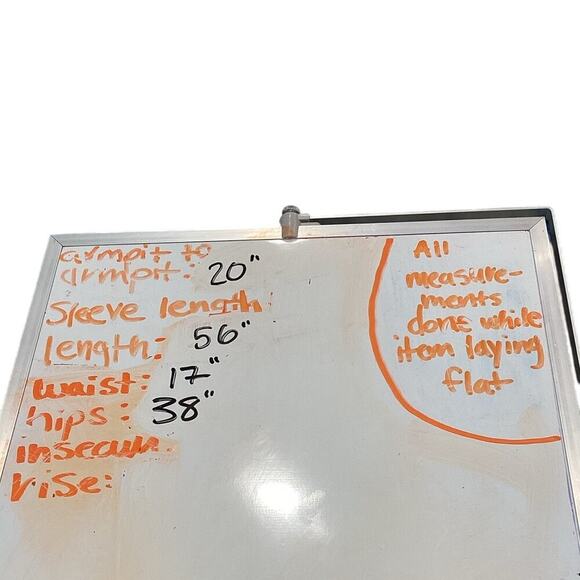 armpit to
armpit: 20"
Sleeve length:
length: 56"
waist: 17"
hips: 38"
inseam
rise:
All
measure-
ments
done while
item laying
flat